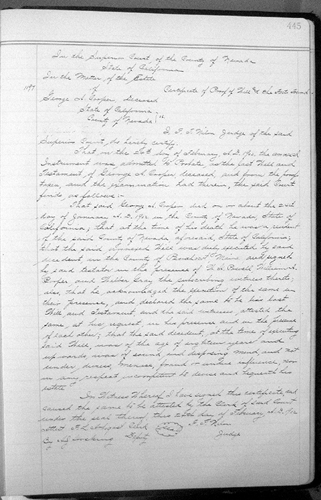 445
In the Superior Court of the County of Nevada
State of California
In the Matter of the Estate
of Certificate of Proof of Will & the Facts Found
George A. Cooper Deceased
State of California
County of Nevada } ss
I, F. T. Nilon Judge of the said
Superior Court, do hereby certify:
That on the 20th day of February A.D. 191 the annexed
Instrument was admitted to Probate, as the last Will and
Testament of George A. Cooper deceased, and from the proof
taken, and the examination had therein, the said Court
finds, as follows:
That said George A. Cooper died on or about the
day of January A.D. 191 in the County of Nevada, State of
California; that at the time of his death he was a resident
of the said County of Nevada aforesaid, State of California;
that the said annexed Will was duly executed by said
decedent, in the County of and signed
by said testator in the presence of
and the subscribing witnesses thereto;
also that he acknowledged the execution of the same in
their presence, and declared the same to be his last
Will and Testament, and the said witnesses attested the
same, at his request, in his presence and in the presence
of each other; that the said decedent, at the time of executing
said Will, was of the age of eighteen years and
upwards, was of sound and disposing mind, and not
under duress, menaces, fraud or undue influence, nor
in any respect incompetent to devise and bequeath his
estate.
In Witness Whereof, I have signed this certificate, and
caused the same to be attested by the Clerk of said Court
under the seal thereof this 20th day of February A.D. 191
Attest: Clerk F. T. Nilon
By Deputy Judge